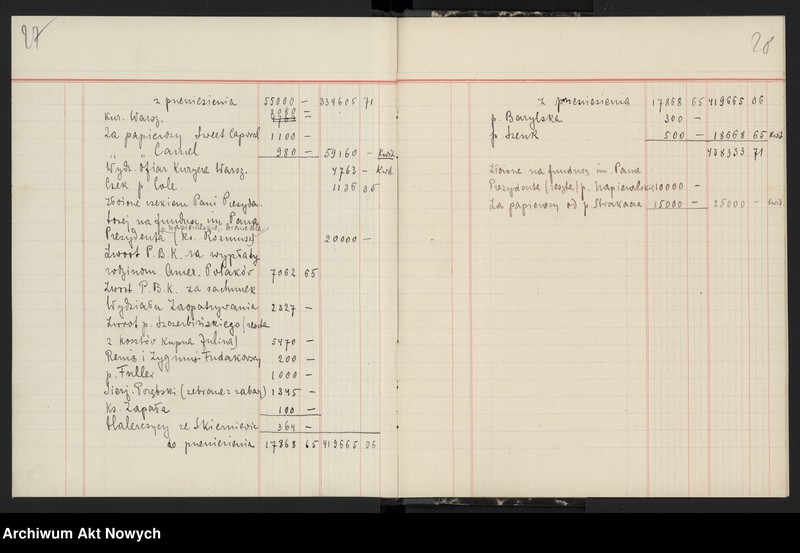 27
z przeniesienia 55000 — 334605 71
kw. Warsz. 2080 —
Za papierosy Sweet Caporal 1100 —
" " Camel 980 — 59160 — Kwit.
Wydz. Ofiar Kuryera Warsz. 4763 — Kwit
Czek p. Cole 1136 35
Złożone czekiem Pani Prezyden-
towej na fundusz im. Pana
Prezydenta (ks. Rozmusz) 20000 —
Zwrot P.B.K. na wypłaty
rodzinom Amer. Polaków 7062 65
Zwrot P.B.K. za rachunek
Wydziału Zaopatrywania 2327 —
Zwrot p. Szczerbińskiego (reszta
z kosztów kupna Julina) 5470 —
Remis i Zygmunt Fudakowscy 200 —
p. Fuller 1000 —
Sierż. Porębski (zebrane z zabawy) 1345 —
Ks. Zapała 100 —
Hallerczycy ze Skierniewic 364 —
do przeniesienia 17868 65 419665 06
28
z przeniesienia 17868 65 419665 06
p. Barylska 300 —
p. Szenk 500 — 18668 65 Kwit
438333 71
Złożone na fundusz im. Pana
Prezydenta (reszta) p. Napieralski 10000 —
Za papierosy od p. Strakacza 15000 — 25000 — Kwit
Archiwum Akt Nowych